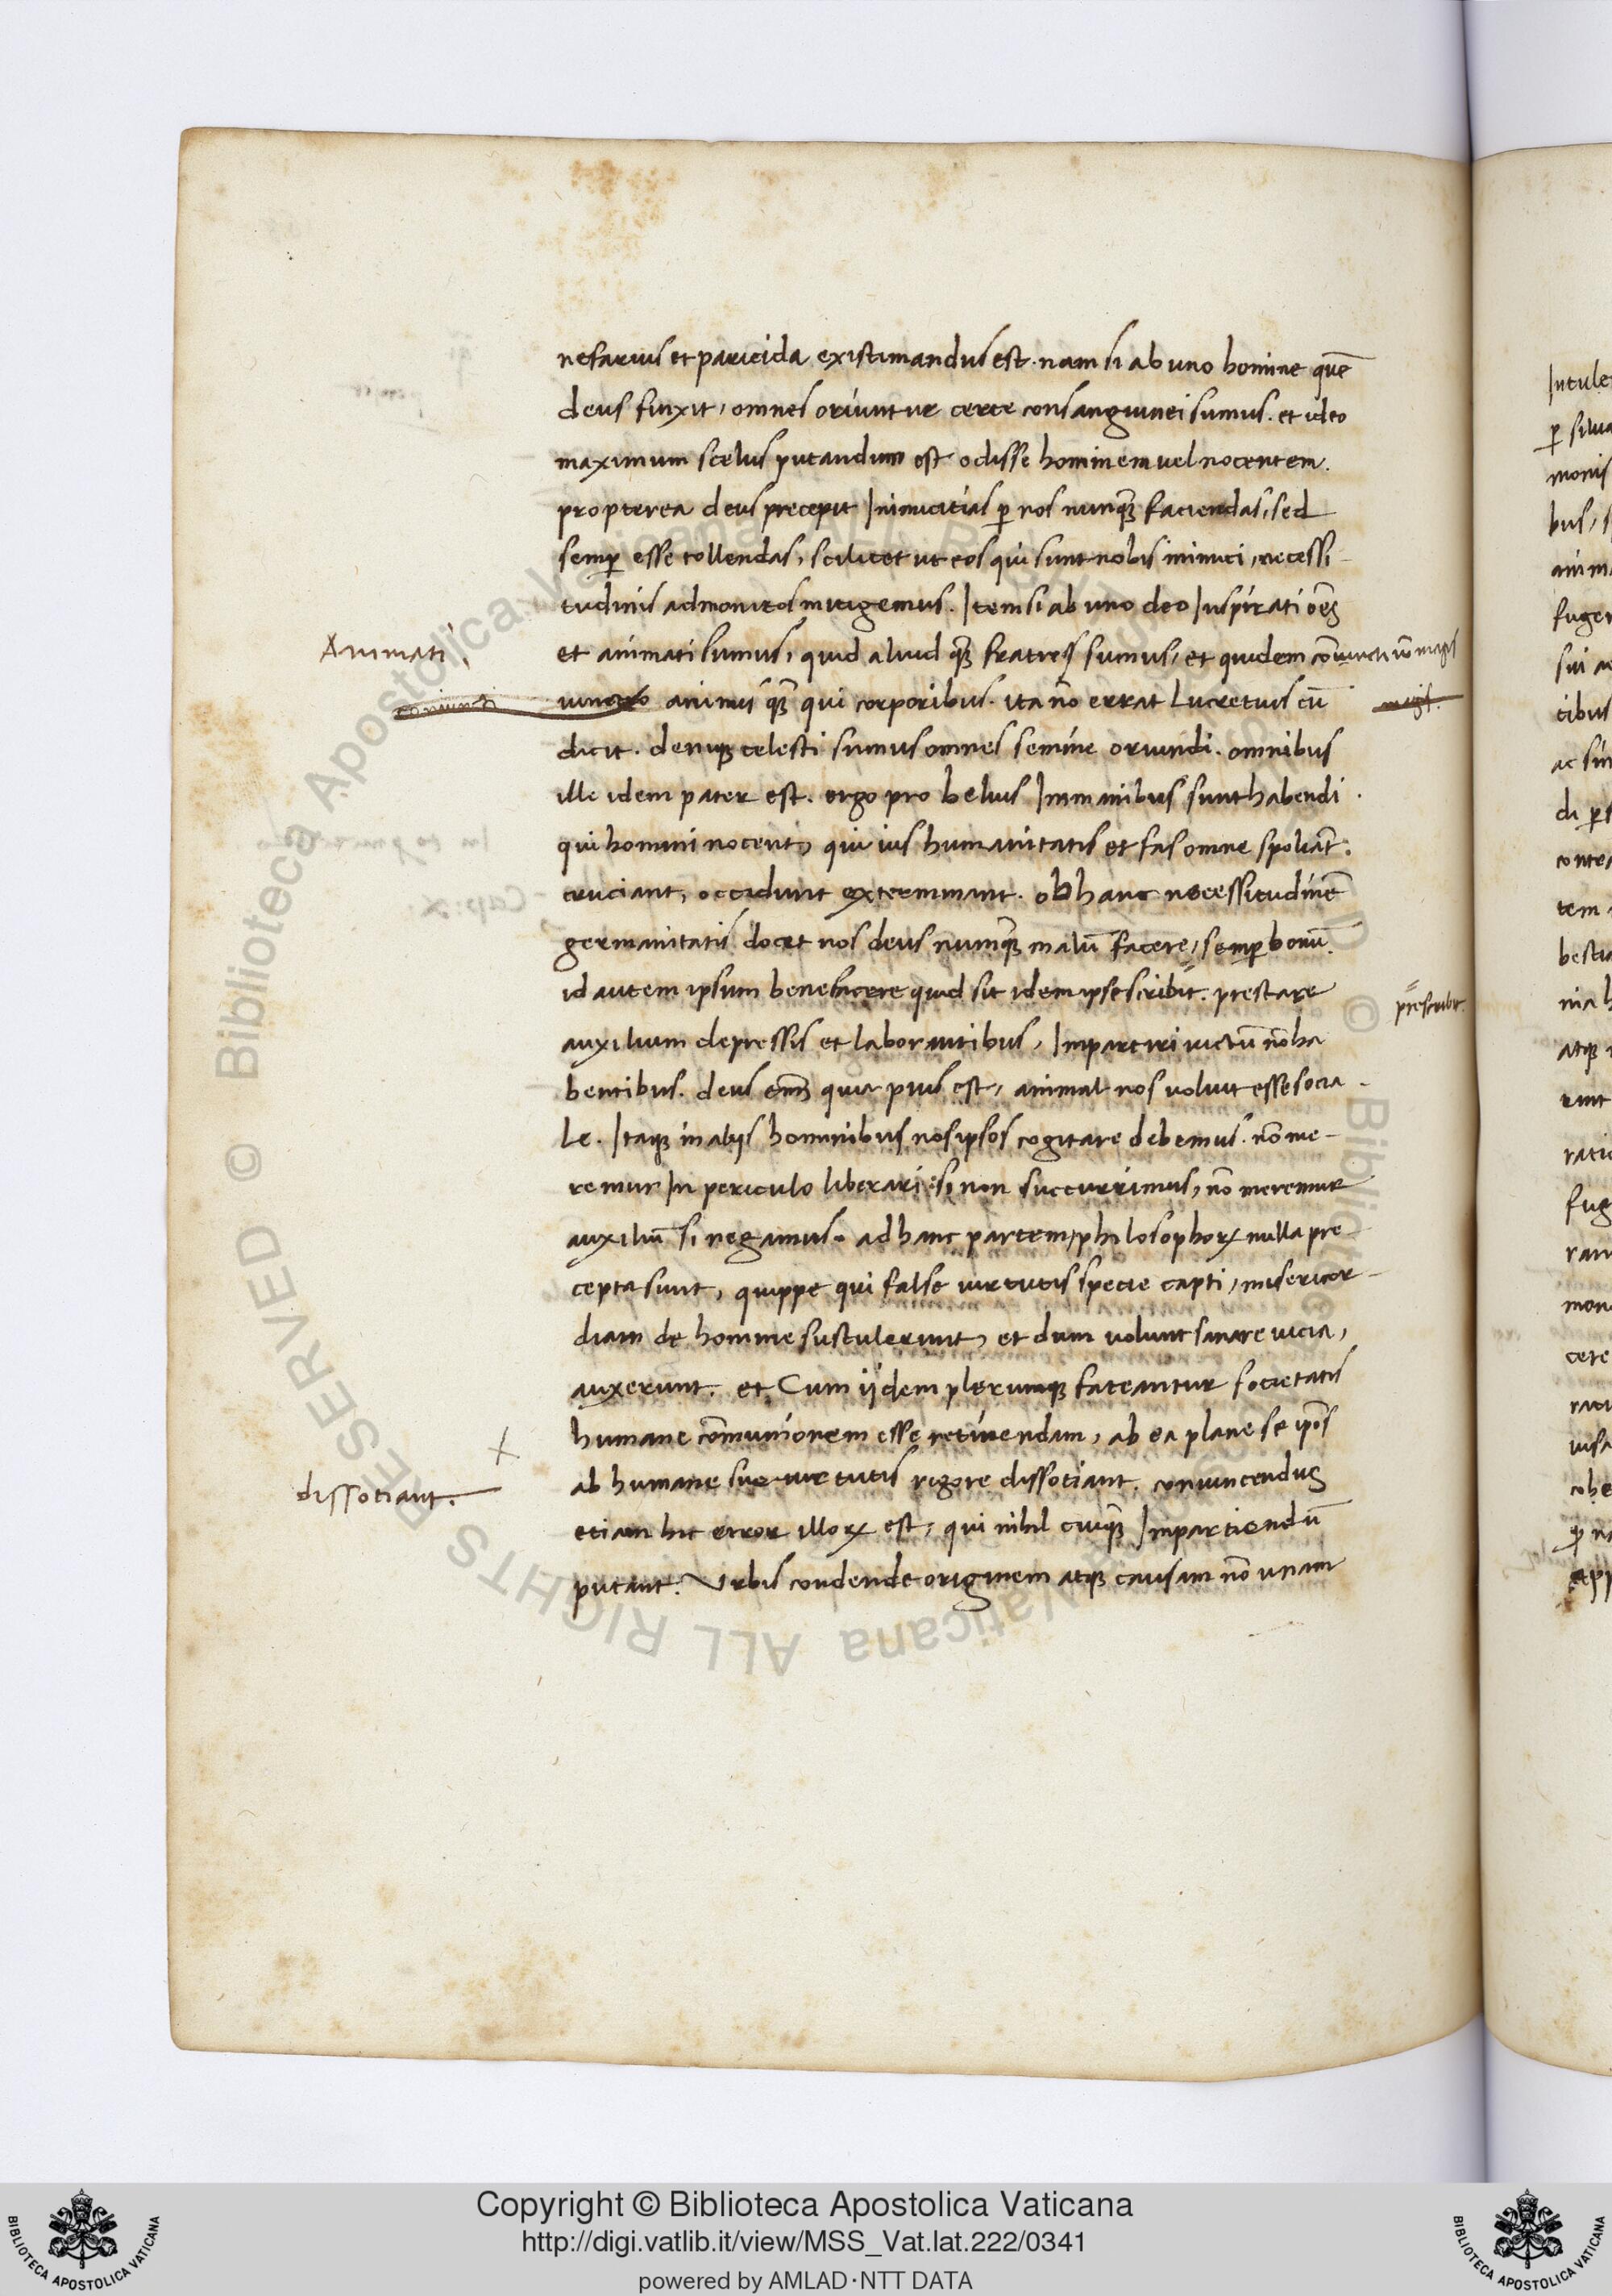 nefarius et paricida existimandus est. nam si ab uno homine quē
deus finxit, omnes oriuntur certe consanguinei sumus. et ideo
maximum scelus putandum est odisse hominem uel nocentem.
propterea deus precepit Inimicitias p̱ nos nunqꝫ faciendas, sed
semp̱ esse tollendas, scilicet ut eos qui sunt nobis inimici, necessi-
tudinis admonitos mitigemus. Item si ab uno deo Inspirati oēs
Animati.
et animati sumus, quid aliud qꝫ fratres sumus, et quidem cōiunctiores magis
coniuncti
iuncto animis qꝫ qui corporibus. ita nō errat Lucretius cū
magis.
dicit. deniqꝫ celesti sumus omnes semine oriundi. omnibus
ille idem pater est. ergo pro beluis Immanibus sunt habendi.
qui homini nocent, qui ius humanitatis et fas omne spoliāt.
cruciant, occidunt exterminant. ob hanc necessitudinē
germanitatis docet nos deus numqꝫ malū facere, semp̱ bonū.
id autem ipsum benefacere quid sit idem ipse scribit. prestare
prescribit.
auxilium depressis et laborantibus, Impartiri uictū nō ha
bentibus. deus em̄ quia pius est, animal nos uoluit esse socia-
le. Itaqꝫ in alijs hominibus nos ipsos cogitare debemus. nō me-
remur In periculo liberari: si non succurrimus, nō meremur
auxiliū si negamus. ad hanc partem, philosophoꝝ nulla pre-
cepta sunt, quippe qui false uirtutis specie capti, misericor-
diam de homine sustulerunt, et dum uolunt sanare uicia,
auxerunt. et Cum ijdem plerumqꝫ fateantur societatis
humane cōmunionem esse retinendam, ab ea plane se ip̄os
dissotiant.
ab humane sue uirtutis rigore dissotiant. conuincendus
etiam hic error illoꝝ est, qui nihil cuiqꝫ Impartiendū
putant. Vrbis condende originem atqꝫ causam nō unam
Copyright © Biblioteca Apostolica Vaticana
http://digi.vatlib.it/view/MSS_Vat.lat.222/0341
powered by AMLAD·NTT DATA